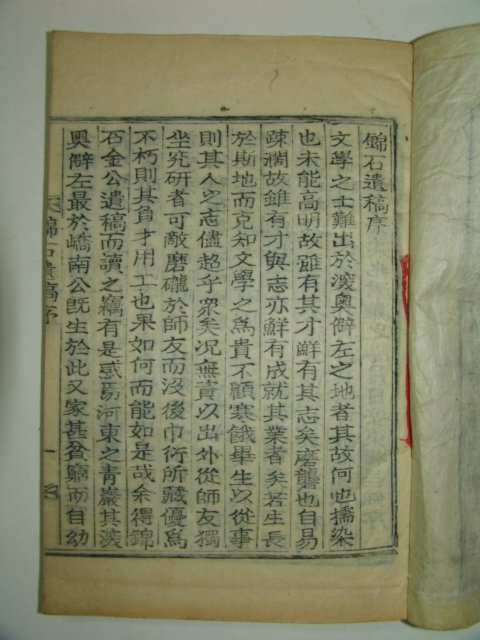 錦石遺稿序
文學之士難出於深奧僻左之地者其故何也擩染
也未能高明故雖有其才鮮有其志矣磨礱也自易
疎濶故雖有才與志亦鮮有成就其業者矣若生長
於斯地而克知文學之爲貴不顧寒餓畢生以從事
則其人之志儘超乎衆矣况無資以出外從師友獨
坐究研者可敵磨礲於師友而沒後巾衍所藏優爲
不朽則其負才用工也果如何而能如是哉余得錦
石金公遺稿而讀之竊有是惑焉河東之靑巖其深
奧僻左最於嶠南公旣生於此又家甚貧窮而自幼
錦石遺稿序
一